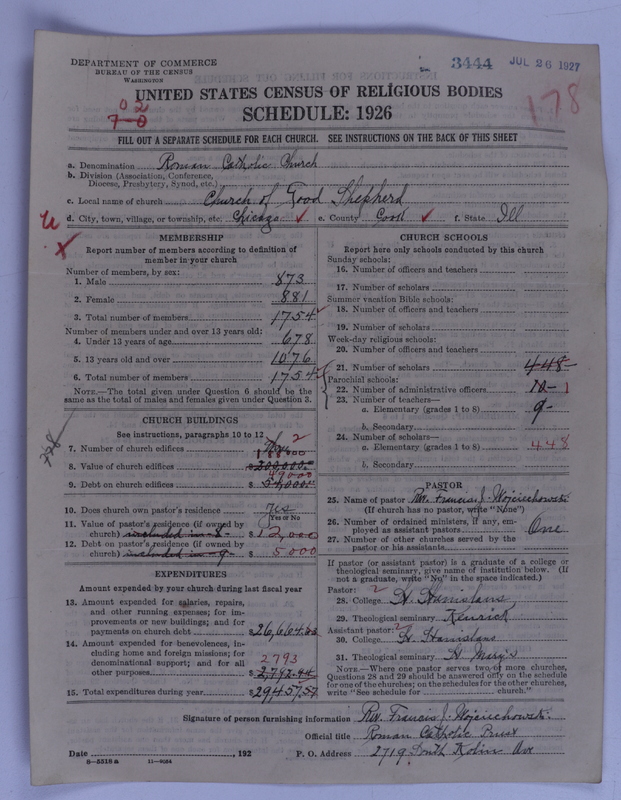 DEPARTMENT OF COMMERCE
BUREAU OF THE CENSUS
WASHINGTON
3444 JUL 26 1927
178
UNITED STATES CENSUS OF RELIGIOUS BODIES
SCHEDULE: 1926
0 2
7-0
FILL OUT A SEPARATE SCHEDULE FOR EACH CHURCH. SEE INSTRUCTIONS ON THE BACK OF THIS SHEET
a. Denomination Roman Catholic Church
b. Division (Association, Conference, Diocese, Presbytery, Synod, etc.)
c. Local name of church Church of Good Shepherd
d. City, town, village, or township, etc. Chicago e. County Cook f. State Ill
MEMBERSHIP
Report number of members according to definition of
member in your church
Number of members, by sex:
1. Male 873
2. Female 881
3. Total number of members 1754
Number of members under and over 13 years old:
4. Under 13 years of age 678
5. 13 years old and over 1076
6. Total number of members 1754
NOTE.—The total given under Question 6 should be the
same as the total of males and females given under Question 3.
CHURCH BUILDINGS
See instructions, paragraphs 10 to 12
7. Number of church edifices 2
8. Value of church edifices $ 200,000.00
9. Debt on church edifices $
10. Does church own pastor's residence yes
Yes or No
11. Value of pastor's residence (if owned by
church) included in - 8 - $ 12,000
12. Debt on pastor's residence (if owned by
church) included in - 9 - $ 5000
EXPENDITURES
Amount expended by your church during last fiscal year
13. Amount expended for salaries, repairs,
and other running expenses; for im-
provements or new buildings; and for
payments on church debt $
14. Amount expended for benevolences, in-
cluding home and foreign missions; for
denominational support; and for all
other purposes 2793
$ 2,792.94
15. Total expenditures during year $ 29457.57
CHURCH SCHOOLS
Report here only schools conducted by this church
Sunday schools:
16. Number of officers and teachers
17. Number of scholars
Summer vacation Bible schools:
18. Number of officers and teachers
19. Number of scholars
Week-day religious schools:
20. Number of officers and teachers
21. Number of scholars 448
Parochial schools:
22. Number of administrative officers 10- 1
23. Number of teachers—
a. Elementary (grades 1 to 8) 9-
b. Secondary
24. Number of scholars—
a. Elementary (grades 1 to 8) 448
b. Secondary
PASTOR
25. Name of pastor Rev. Francis J. Wojciechowski
(If church has no pastor, write "None")
26. Number of ordained ministers, if any, em-
ployed as assistant pastors One
27. Number of other churches served by the
pastor or his assistants
If pastor (or assistant pastor) is a graduate of a college or
theological seminary, give name of institution below. (If
not a graduate, write "No" in the space indicated.)
Pastor: 2
28. College St. Stanislaus
29. Theological seminary Kenrick
Assistant pastor: 2
30. College St. Stanislaus
31. Theological seminary St Mary's
NOTE.—Where one pastor serves two or more churches,
Questions 28 and 29 should be answered only on the schedule
for one of the churches; on the schedules for the other churches,
write "See schedule for church."
Signature of person furnishing information Rev. Francis J. Wojciechowski
Official title Roman Catholic Priest
Date , 192 P. O. Address 2719 South Kolin Ave
8-5518 a 11-9064